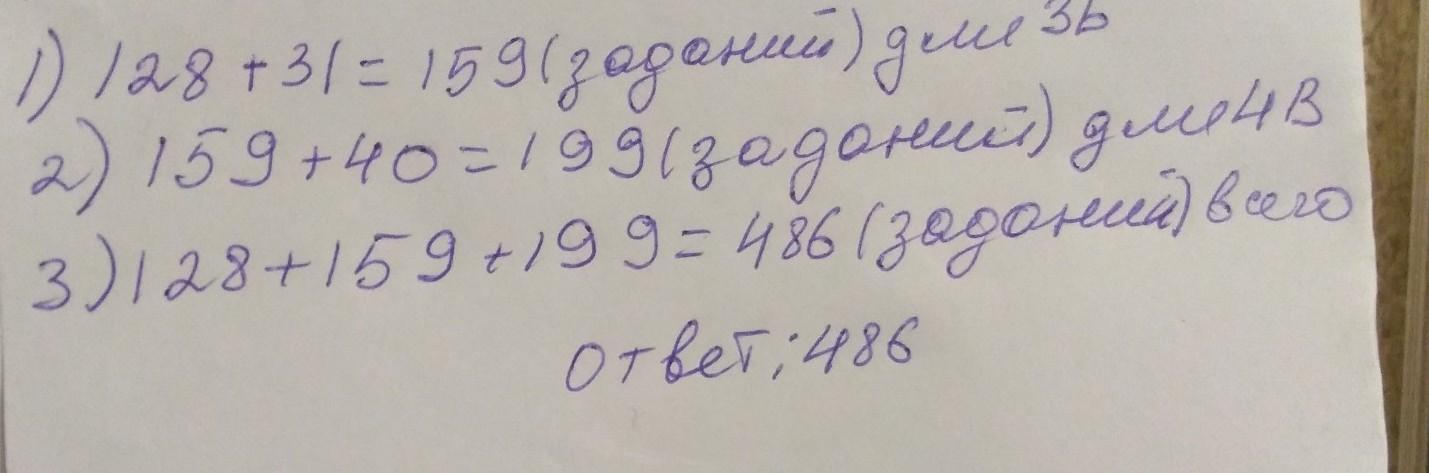 1) 128+31=159(заданий) для 3Б
2) 159+40=199(заданий) для 4В
3) 128+159+199=486(заданий) всего
ответ: 486